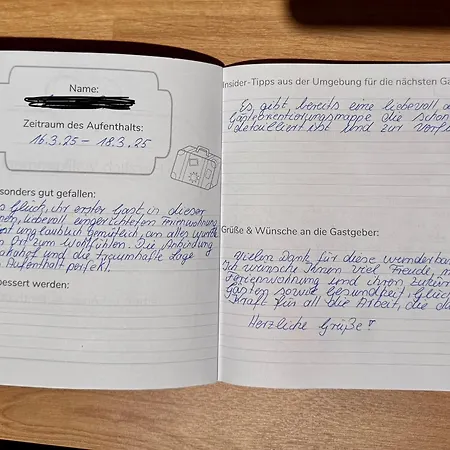 Name:
Zeitraum des Aufenthalts:
16.3.25 – 18.3.25
sonders gut gefallen:
s Glück, ihr erster Gast in dieser
nen, liebevoll eingerichteten Ferienwohnung
st unglaublich gemütlich, an alles wurde
Ort zum Wohlfühlen. Die Anbindung
und die traumhafte Lage
Aufenthalt perfekt.
bessert werden:
Insider-Tipps aus der Umgebung für die nächsten Gä
Es gibt bereits eine liebevoll,
die schon
detailliert ist und zur Verfü
Grüße & Wünsche an die Gastgeber:
Vielen Dank für diese wunderba
Ich wünsche Ihnen viel Freude, m
Ferienwohnung und ihren zukün
Gästen sowie Gesundheit, Glück
Kraft für all die Arbeit, die d
Herzliche Grüße!